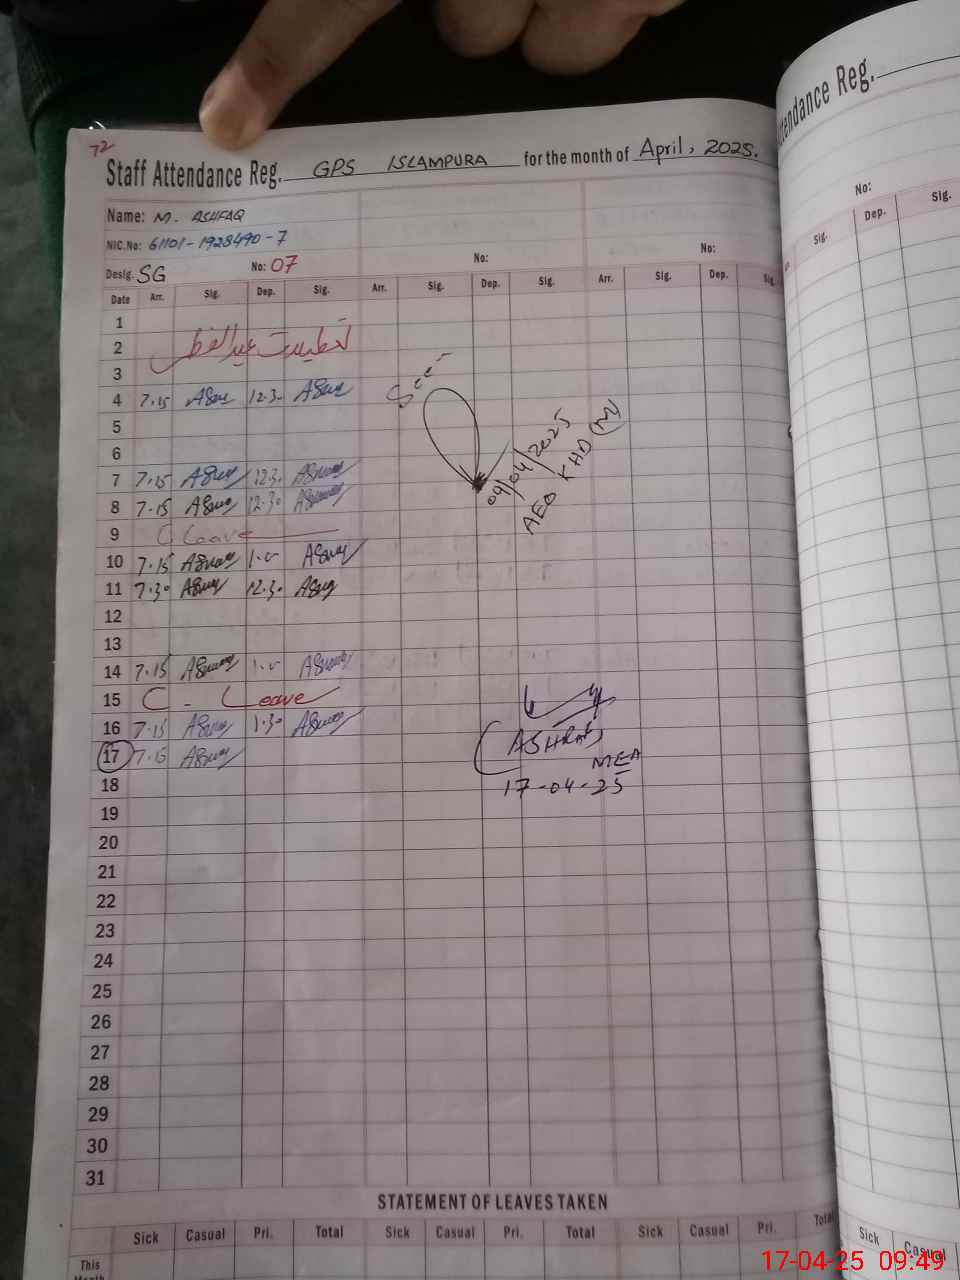 72
Staff Attendance Reg. GPS ISLAMPURA for the month of April, 2025.
Name: M. ASHFAQ
NIC.No: 61101-1928490-7
Desig. SG No: 07 No: No:
Date Arr. Sig. Dep. Sig. Arr. Sig. Dep. Sig. Arr. Sig. Dep. Sig.
1
2 تعطیلات عیدالفطر
3
4 7.15 12.30
5
6
7 7.15 12.30
8 7.15 12.30
See
09/04/2025
AEO KHD (M)
9 C Leave
10 7.15 1.00
11 7.30 12.30
12
13
14 7.15 1.00
15 C - Leave
16 7.15 1.30
17 7.15
(ASHRAF)
MEA
17-04-25
18
19
20
21
22
23
24
25
26
27
28
29
30
31
STATEMENT OF LEAVES TAKEN
Sick Casual Pri. Total Sick Casual Pri. Total Sick Casual Pri. Total
This
Month
ttendance Reg.
No:
Sig. Dep. Sig.
Sick Casual
17-04-25 09:49